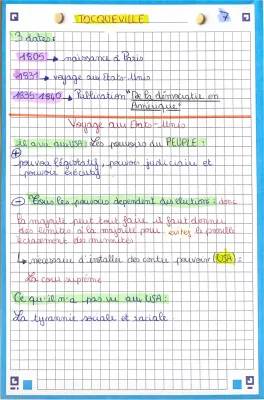 TOCQUEVILLE
7
3 dates:
1805 → naissance à Paris
1831 → voyage aux Etats-Unis
1835-1840 → Publication "De la démocratie en
Amérique"
Voyage aux Etats-Unis
Il a vu aux USA: Les pouvoirs du PEUPLE:
+
pouvoir législatif, pouvoir judiciaire et
pouvoir exécutif
- Tous les pouvoirs dépendent des élections: donc
la majorité peut tout faire il faut donner
des limites à la majorité pour éviter le possible
écrasement des minorités
↳ nécessaire d'installer des contre pouvoirs (USA):
La cour suprême
Ce qu'il n'a pas vu aux USA:
La tyrannie sociale et raciale